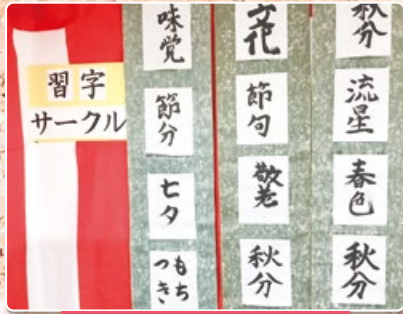 習字
サークル
味覚
節分
七夕
もち
つき
文化
節句
敬老
秋分
秋分
流星
春色
秋分